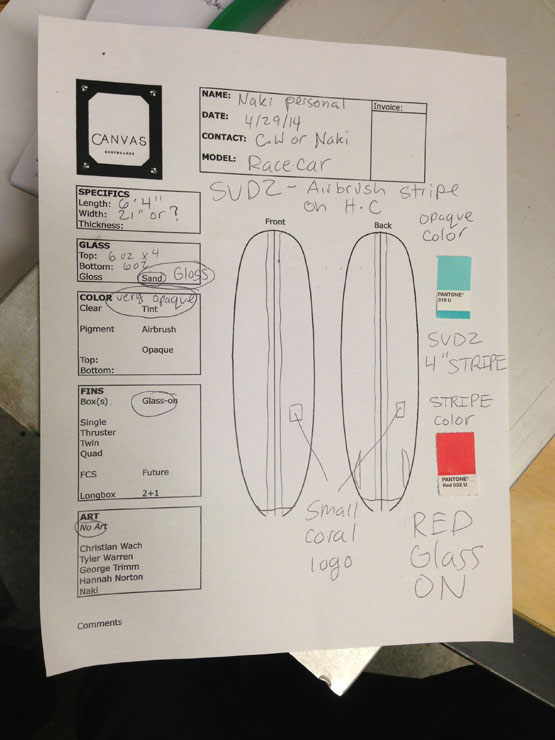 CANVAS
SURFBOARDS
NAME: Naki personal
DATE: 4/29/14
CONTACT: C.W or Naki
MODEL: Racecar
Invoice:
SUDZ - Airbrush stripe
on H.C
SPECIFICS
Length: 6'4"
Width: 21" or ?
Thickness:
GLASS
Top: 6 oz x 4
Bottom: 6oz
Gloss Sand Gloss
COLOR very opaque
Clear Tint
Pigment Airbrush
Opaque
Top:
Bottom:
FINS
Box(s) Glass-on
Single
Thruster
Twin
Quad
FCS Future
Longbox 2+1
ART
No Art
Christian Wach
Tyler Warren
George Trimm
Hannah Norton
Naki
Comments
Front
Back
Small
coral
logo
opaque
color
PANTONE®
319 U
SUDZ
4" STRIPE
STRIPE
color
PANTONE®
Red 032 U
RED
Glass
ON